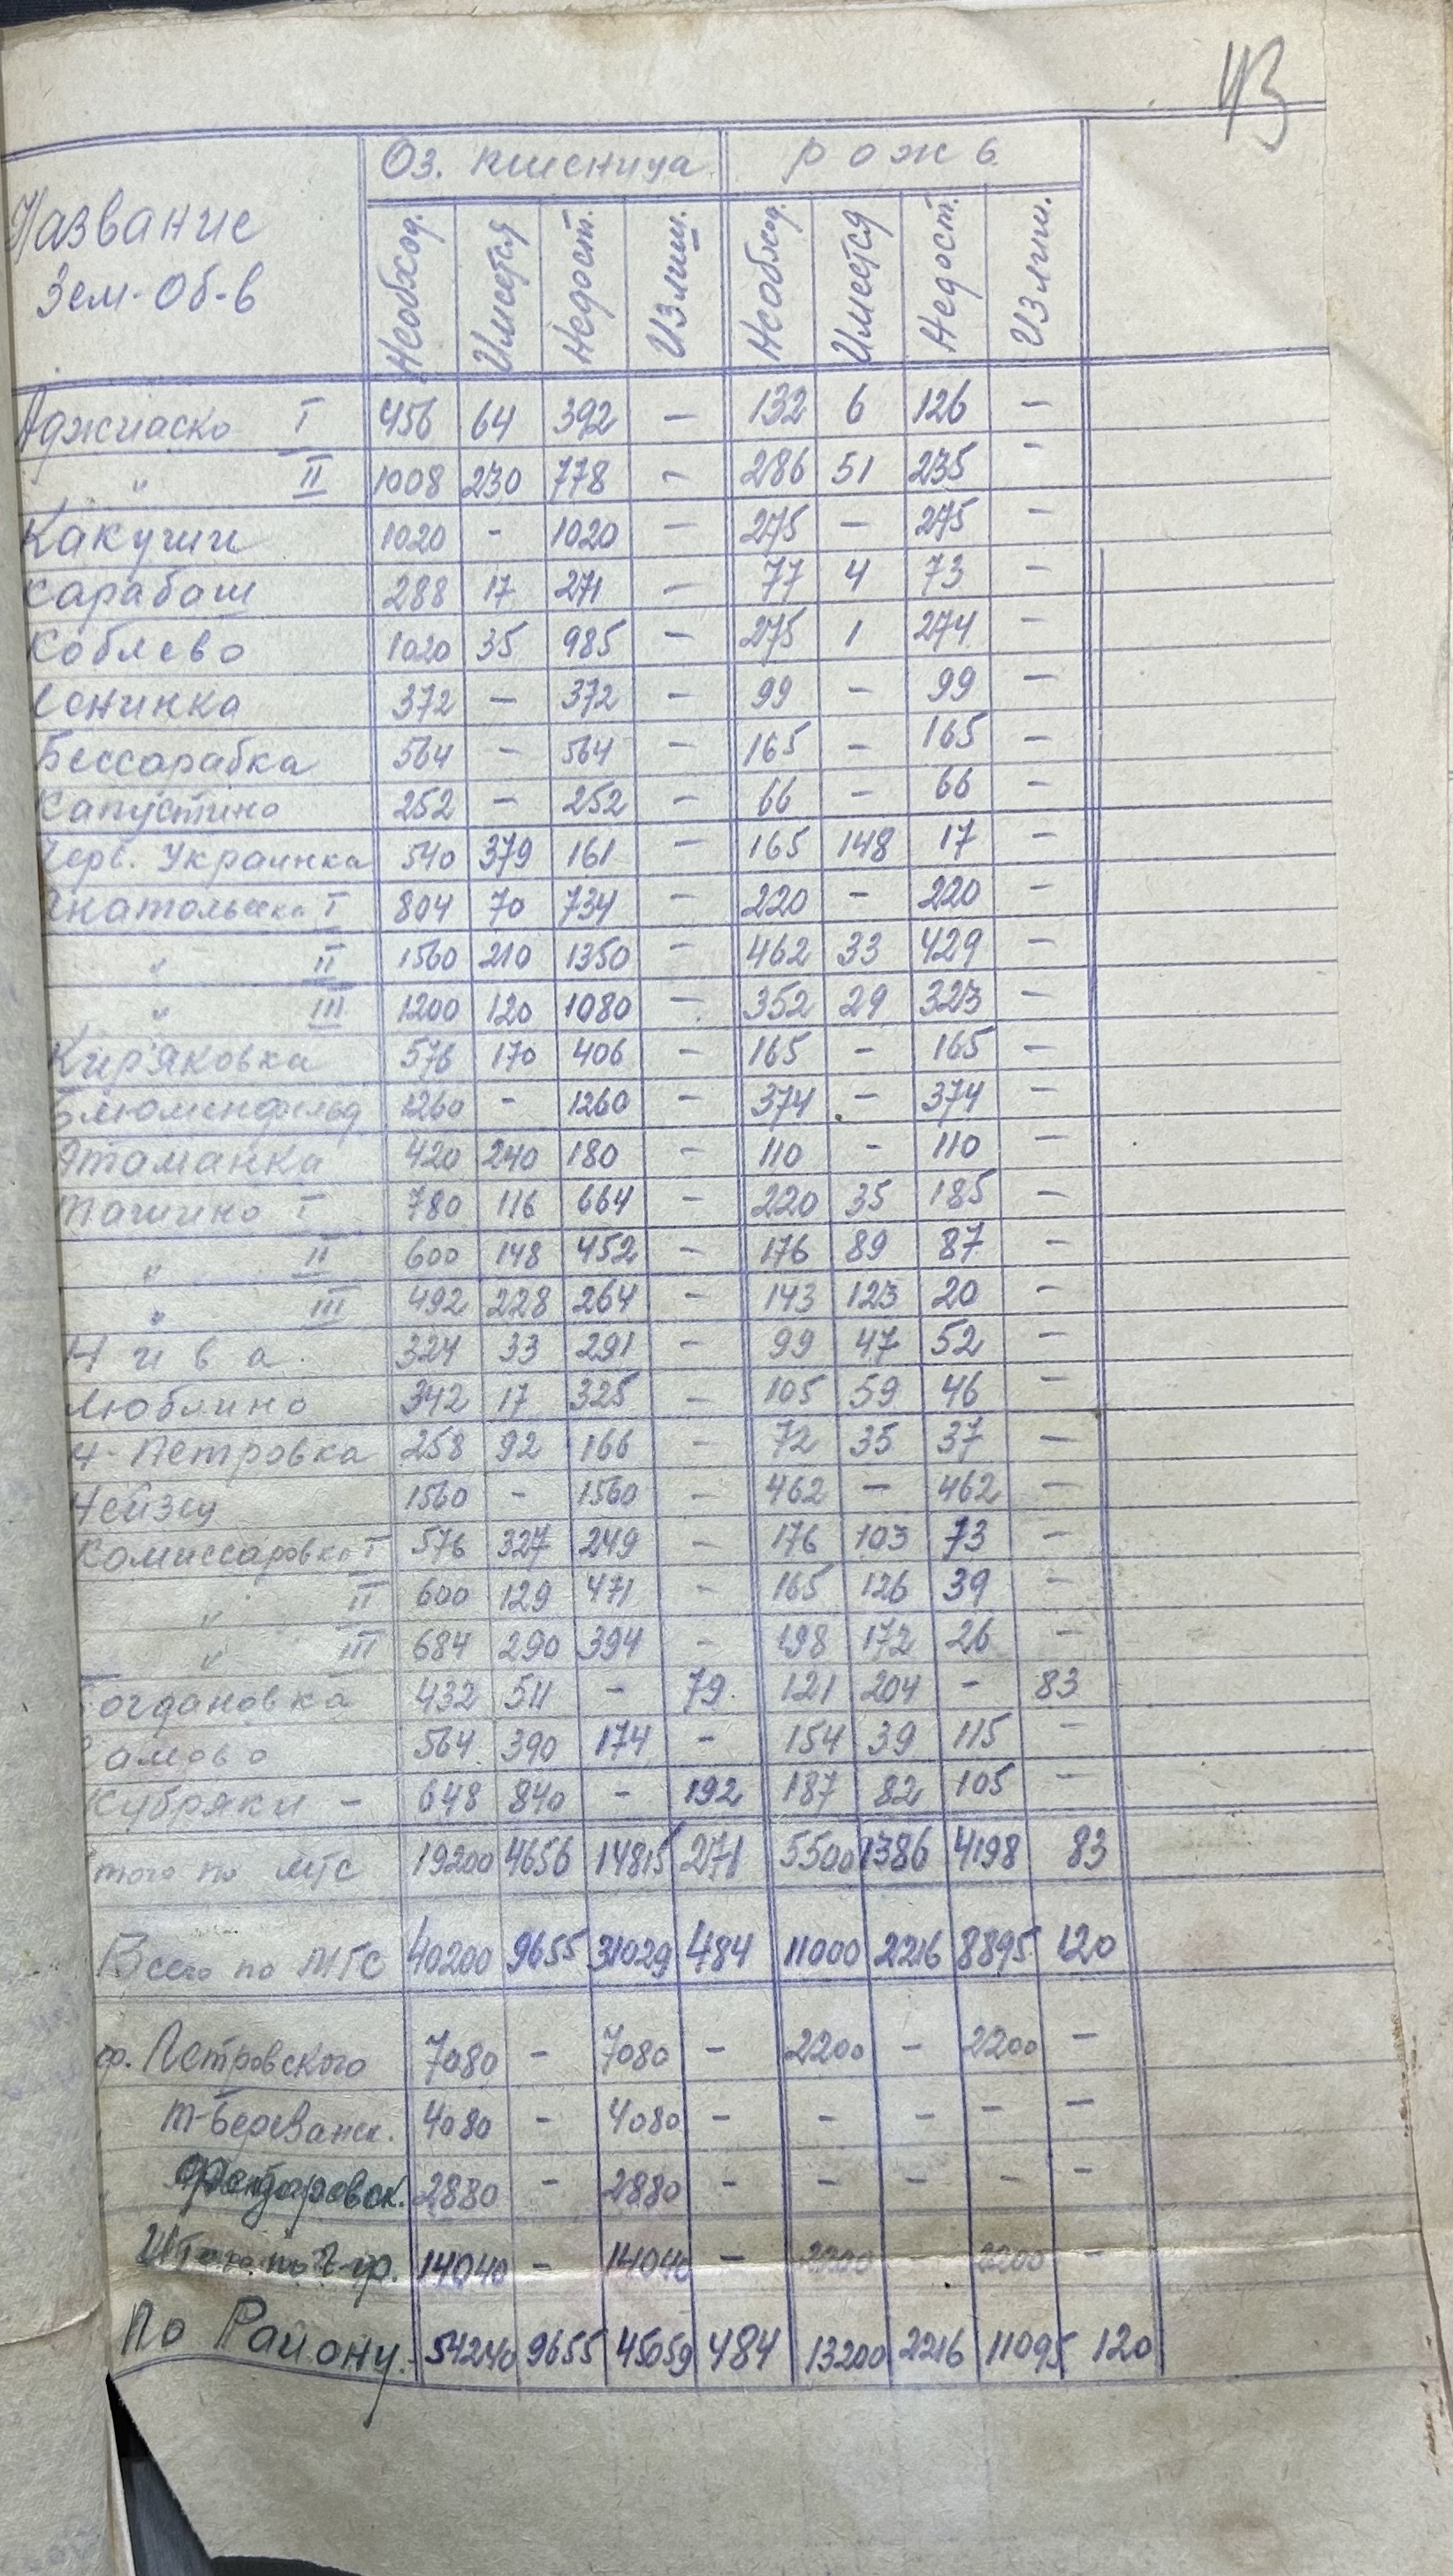 43
Название Зем-Об-в
Оз. пшеница
рожь
Необход. Имеется Недост. Излиш. Необход. Имеется Недост. Излиш.
Аджиаско I 456 64 392 — 132 6 126 —
" II 1008 230 778 — 286 51 235 —
Какучии 1020 - 1020 — 275 — 275 —
Карабаш 288 17 271 — 77 4 73 —
Коблево 1020 35 985 — 275 1 274 —
372 — 372 — 99 — 99 —
Бессарабка 564 — 564 — 165 — 165 —
Капустино 252 — 252 — 66 — 66 —
Черв. Украинка 540 379 161 — 165 148 17 —
Анатольевка I 804 70 734 — 220 — 220 —
" II 1560 210 1350 — 462 33 429 —
" III 1200 120 1080 — 352 29 323 —
Кир'яковка 576 170 406 — 165 — 165 —
Блюменфельд 1260 - 1260 — 374 — 374 —
Атаманка 420 240 180 — 110 - 110 —
Ташино I 780 116 664 — 220 35 185 —
" II 600 148 452 — 176 89 87 —
" III 492 228 264 — 143 123 20 —
Нива. 324 33 291 — 99 47 52 —
Люблино 342 17 325 — 105 59 46 —
Н-Петровка 258 92 166 — 72 35 37 —
Нейзец 1560 - 1560 — 462 — 462 —
Комиссаровка I 576 327 249 — 176 103 73 —
" II 600 129 471 — 165 126 39 —
" III 684 290 394 — 198 172 26 —
Богдановка 432 511 — 79 121 204 — 83
564 390 174 — 154 39 115 —
Кубряки — 648 840 — 192 187 82 105 —
Итого по МТС 19200 4656 14815 271 5500 1386 4198 83
Всего по МТС 40200 9655 31029 484 11000 2216 8895 120
ср. Петровского 7080 - 7080 — 2200 — 2200 —
Т-Березанск. 4080 - 4080 — — — — —
2880 - 2880 — — — — —
Итого по 14040 - 14040 — 2200 2200 —
По Району. 54240 9655 45059 484 13200 2216 11095 120